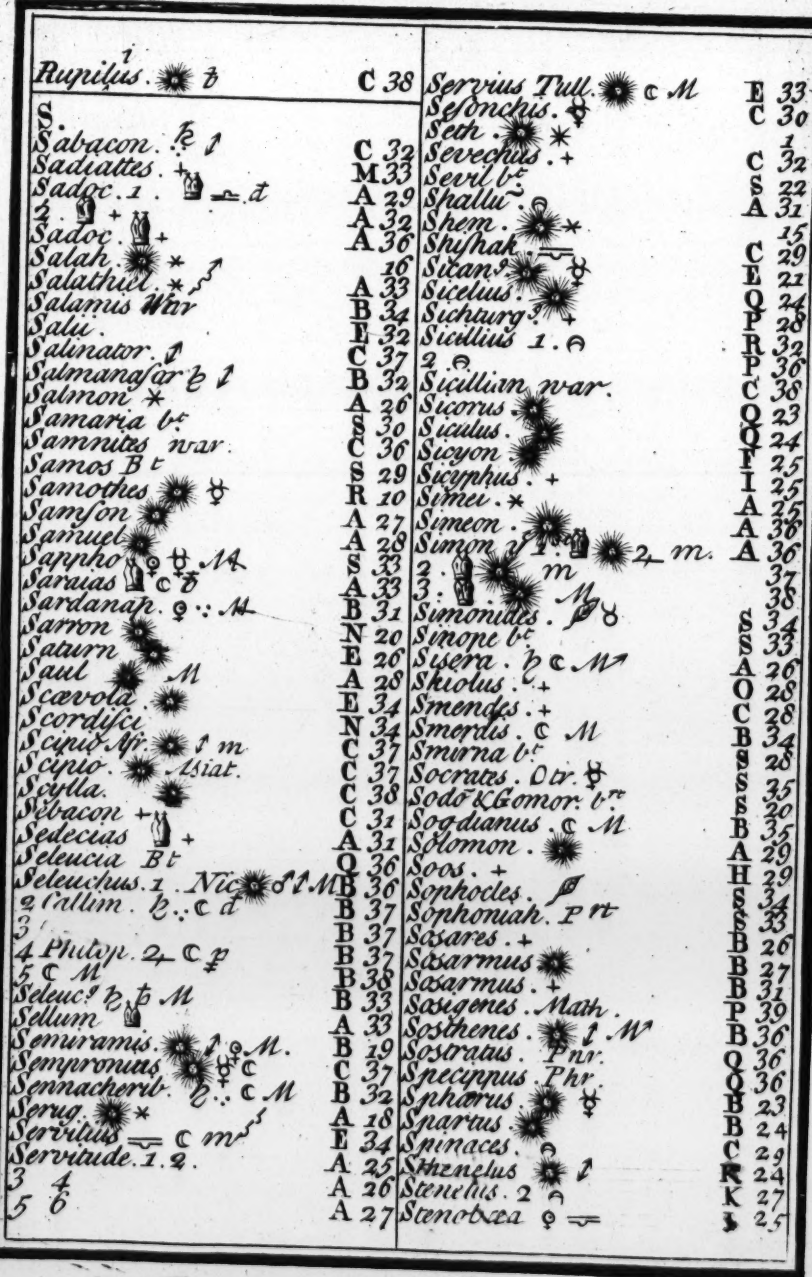 Rupilius. C 38
S.
Sabacon. C 32
Sadiattes. M 33
Sadoc. 1. A 29
2 A 32
Sadoc. A 36
Salah 16
Salathiel. A 33
Salamis War B 34
Salu. E 32
Salinator. C 37
Salmanasar B 32
Salmon A 26
Samaria bt. S 30
Samnites war. C 36
Samos Bt S 29
Samothes R 10
Samson A 27
Samuel A 28
Sappho S 33
Saraias A 33
Sardanap. B 31
Sarron N 20
Saturn E 26
Saul A 28
Scævola. E 34
Scordisci N 34
Scipio Afr. C 37
Scipio. Asiat. C 37
Scylla. C 38
Sebacon C 31
Sedecias A 31
Seleucia Bt Q 36
Seleuchus. 1. Nic B 36
2 Callin. B 37
3 B 37
4 Philop. B 37
5 B 38
Seleucs B 33
Sellum A 33
Semiramis. B 19
Sempronius C 37
Sennacherib. B 32
Serug. A 18
Servilius E 34
Servitude. 1. 2. A 25
3 4 A 26
5 6 A 27
Servius Tull. E 33
Sesonchis. C 30
Seth. 1
Sevechus. C 32
Sevil bt. S 22
Shallu̅. A 31
Shem. 15
Shishak. C 29
Sicans. E 21
Sicelius. Q 24
Sichturgs. P 28
Sicillius 1. R 32
2 P 36
Sicillian war. C 38
Sicorus. Q 23
Siculus. Q 24
Sicyon F 25
Sicyphus. I 25
Simei. A 25
Simeon. A 36
Simon ye 1. A 36
2. 37
3. 38
Simonides. S 34
Sinope bt S 33
Sisera. A 26
Skiolus. O 28
Smendes. C 28
Smerdis. B 34
Smirna bt S 28
Socrates. Otr. S 35
Sodo̅ & Gomor. bnt S 20
Sogdianus. B 35
Solomon. A 29
Soos. H 29
Sophocles. S 34
Sophoniah. Prt S 33
Sosares. B 26
Sosarmus B 27
Sosarmus. B 31
Sosigenes. Math. P 39
Sosthenes. B 36
Sostratus. Pnr. Q 36
Specippus. Phr. Q 36
Sphærus B 23
Spartus B 24
Spinaces. C 29
Sthenelus K 24
Stenelus. 2 K 27
Stenobæa 25